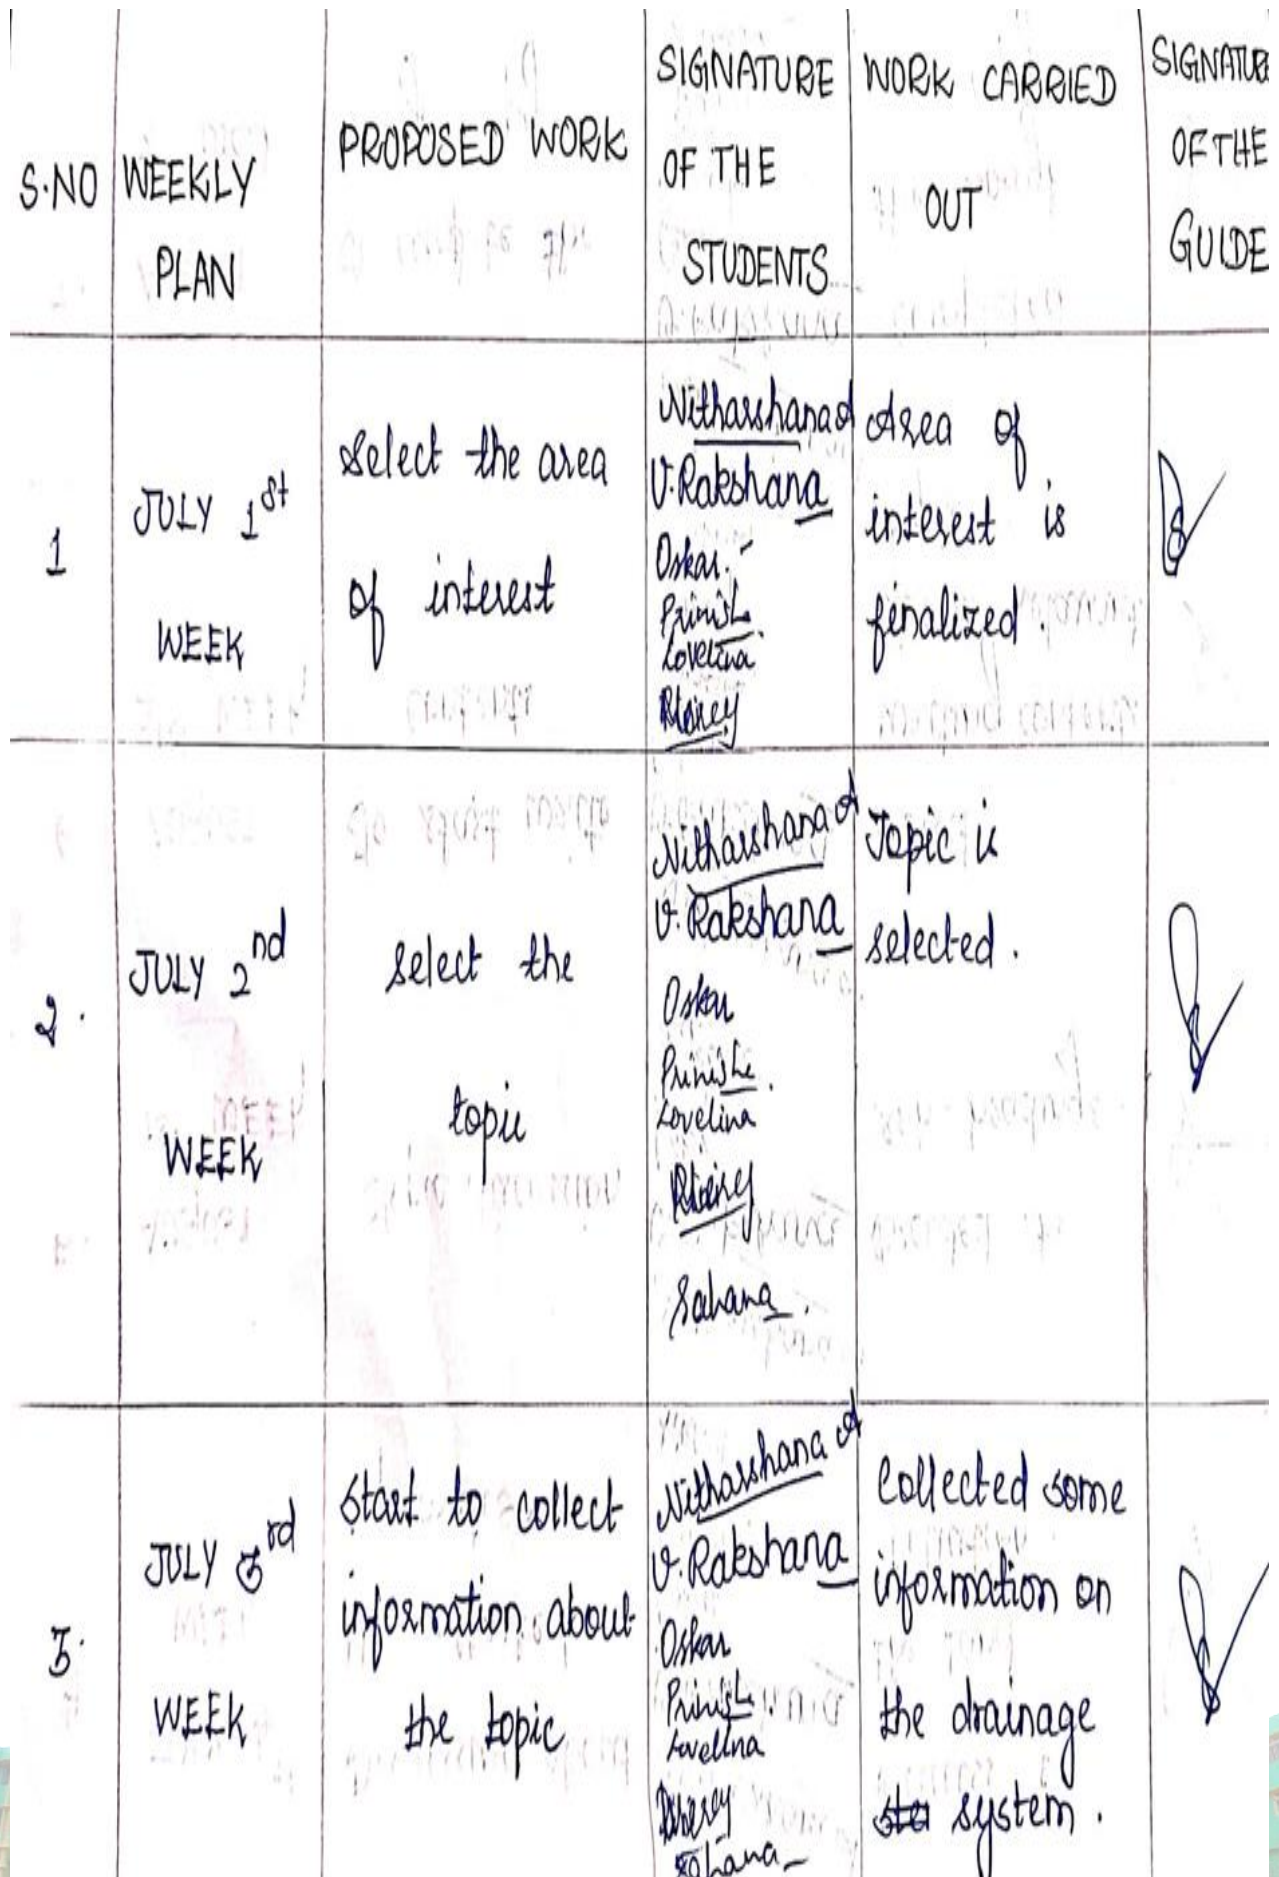 S.NO
WEEKLY
PLAN
PROPOSED WORK
SIGNATURE
OF THE
STUDENTS
WORK CARRIED
OUT
SIGNATURE
OF THE
GUIDE
1
JULY 1st
WEEK
Select the area
of interest
Nitharshana A
V. Rakshana
Oskar
Lovelina
Area of
interest is
finalized.
2.
JULY 2nd
WEEK
select the
topic
Nitharshana A
V. Rakshana
Oskar
Lovelina
Sahana.
Topic is
selected.
3.
JULY 3rd
WEEK
Start to collect
information about
the topic
Nitharshana A
V. Rakshana
Oskar
Lovelina
Sahana
Collected some
information on
the drainage
system.